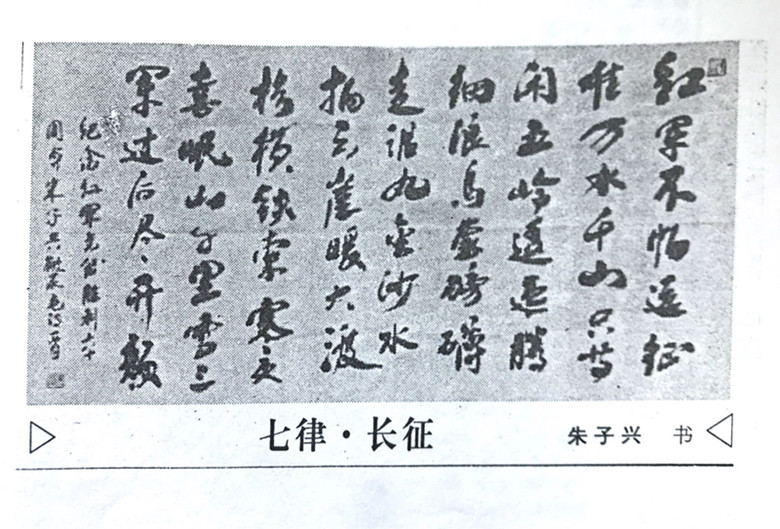 红军不怕远征
难万水千山只等
闲五岭逶迤腾
细浪乌蒙磅礴
走泥丸金沙水
拍云崖暖大渡
桥横铁索寒更
喜岷山千里雪三
军过后尽开颜
纪念红军长征胜利六十
周年朱子兴敬录毛诗一首
七律·长征
朱子兴 书